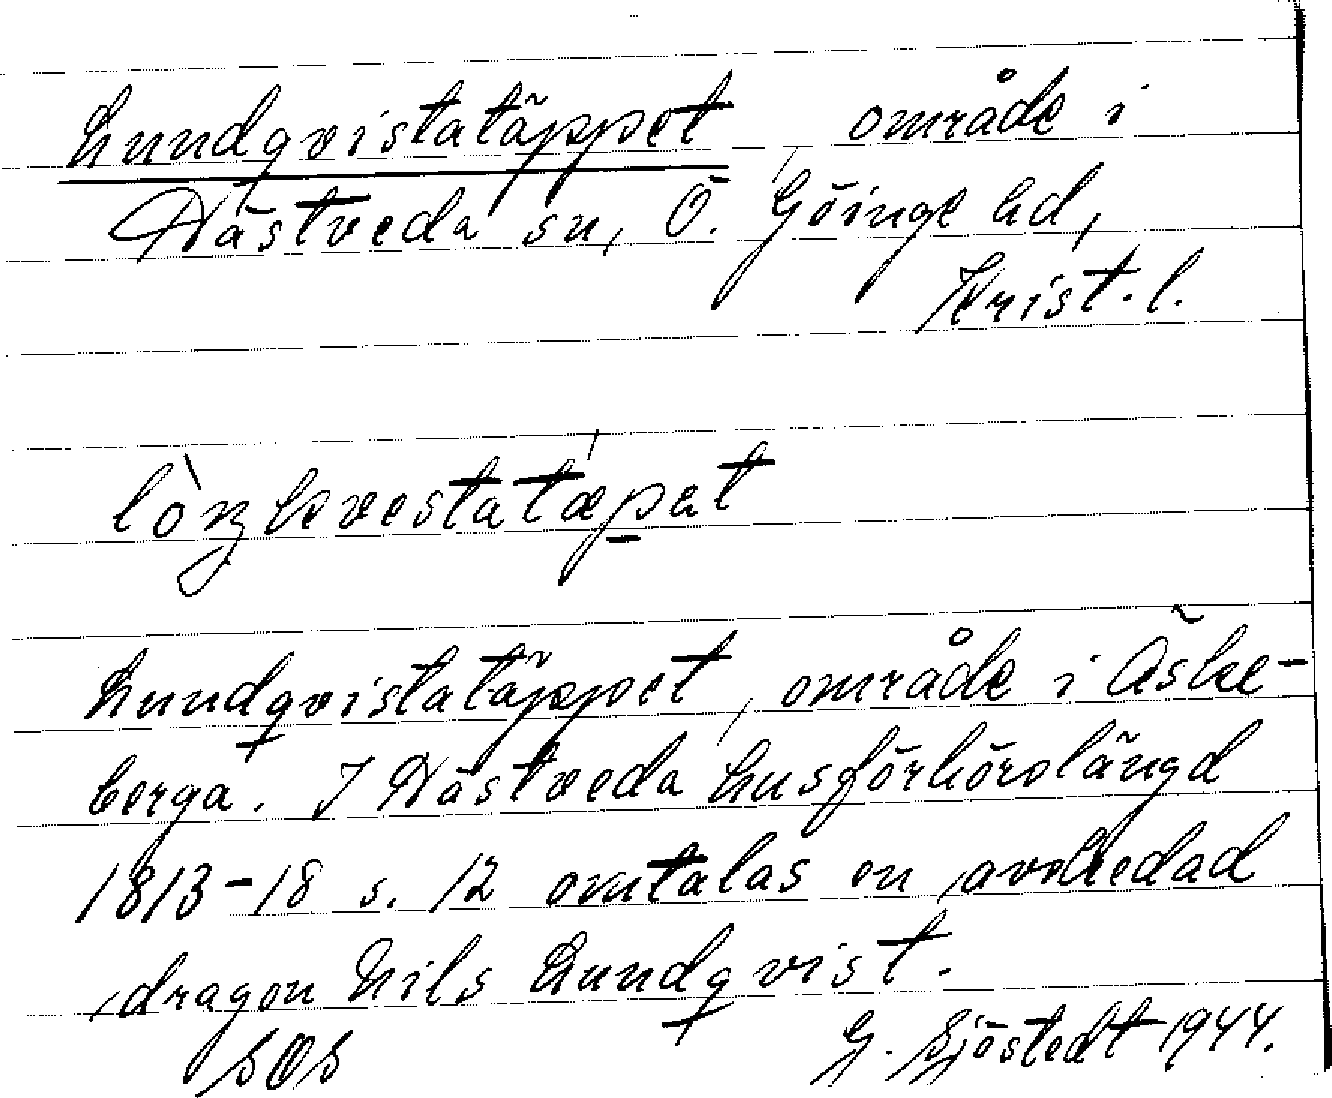 Lundqvistatäppet, område i
Hästveda sn, Ö. Göinge hd,
Krist. l.
Lundqvistatäppet, område i Äske-
berga. I Hästveda husförhörslängd
1813-18 s. 12 omtalas en avskedad
dragon Nils Lundqvist.
SOS G. Sjöstedt 1944.